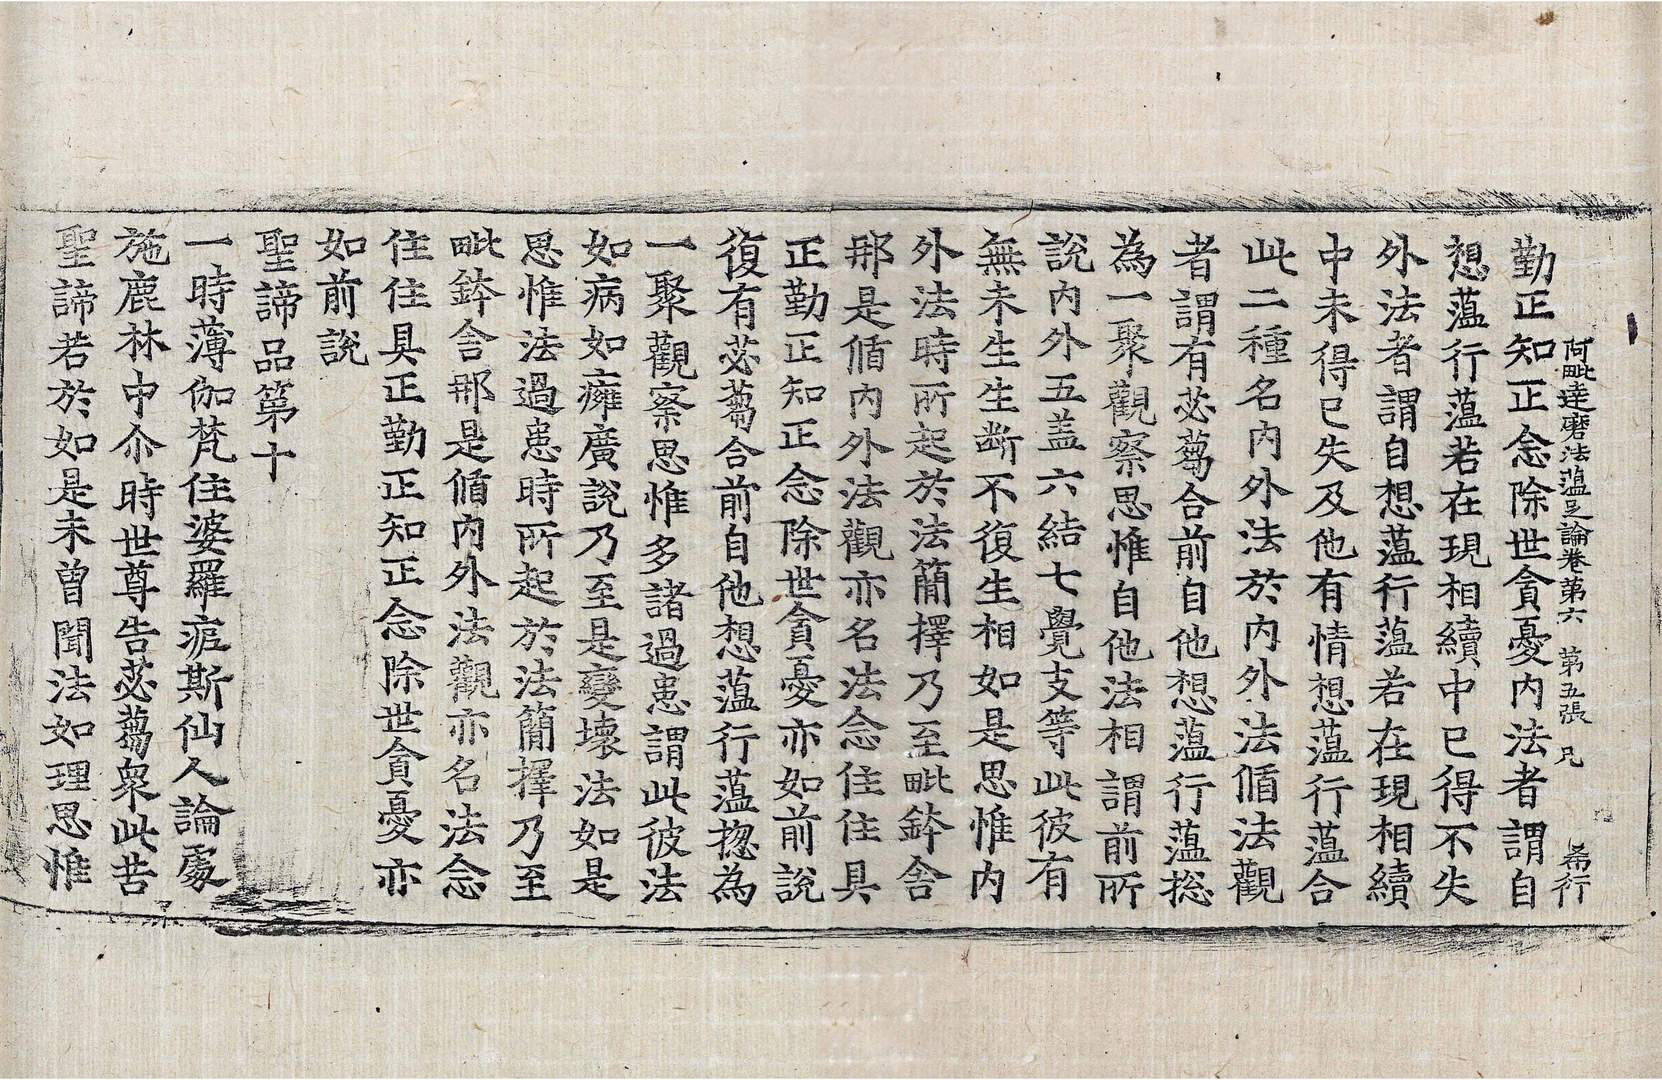 阿毗達磨法蘊足論卷第六 第五張 兄 希行
勤正知正念除世貪憂內法者謂自
想蘊行蘊若在現相續中已得不失
外法者謂自想蘊行蘊若在現相續
中未得已失及他有情想蘊行蘊合
此二種名內外法於內外法循法觀
者謂有苾蒭合前自他想蘊行蘊捴
為一聚觀察思惟自他法相謂前所
說內外五盖六結七覺支等此彼有
無未生生断不復生相如是思惟內
外法時所起於法簡擇乃至毗鉢舍
那是循內外法觀亦名法念住住具
正勤正知正念除世貪憂亦如前說
復有苾蒭合前自他想蘊行蘊捴為
一聚觀察思惟多諸過患謂此彼法
如病如癰廣說乃至是變壞法如是
思惟法過患時所起於法簡擇乃至
毗鉢舍那是循內外法觀亦名法念
住住具正勤正知正念除世貪憂亦
如前說
聖諦品第十
一時薄伽梵住婆羅痆斯仙人論處
施鹿林中尒時世尊告苾蒭衆此苦
聖諦若於如是未曾聞法如理思惟